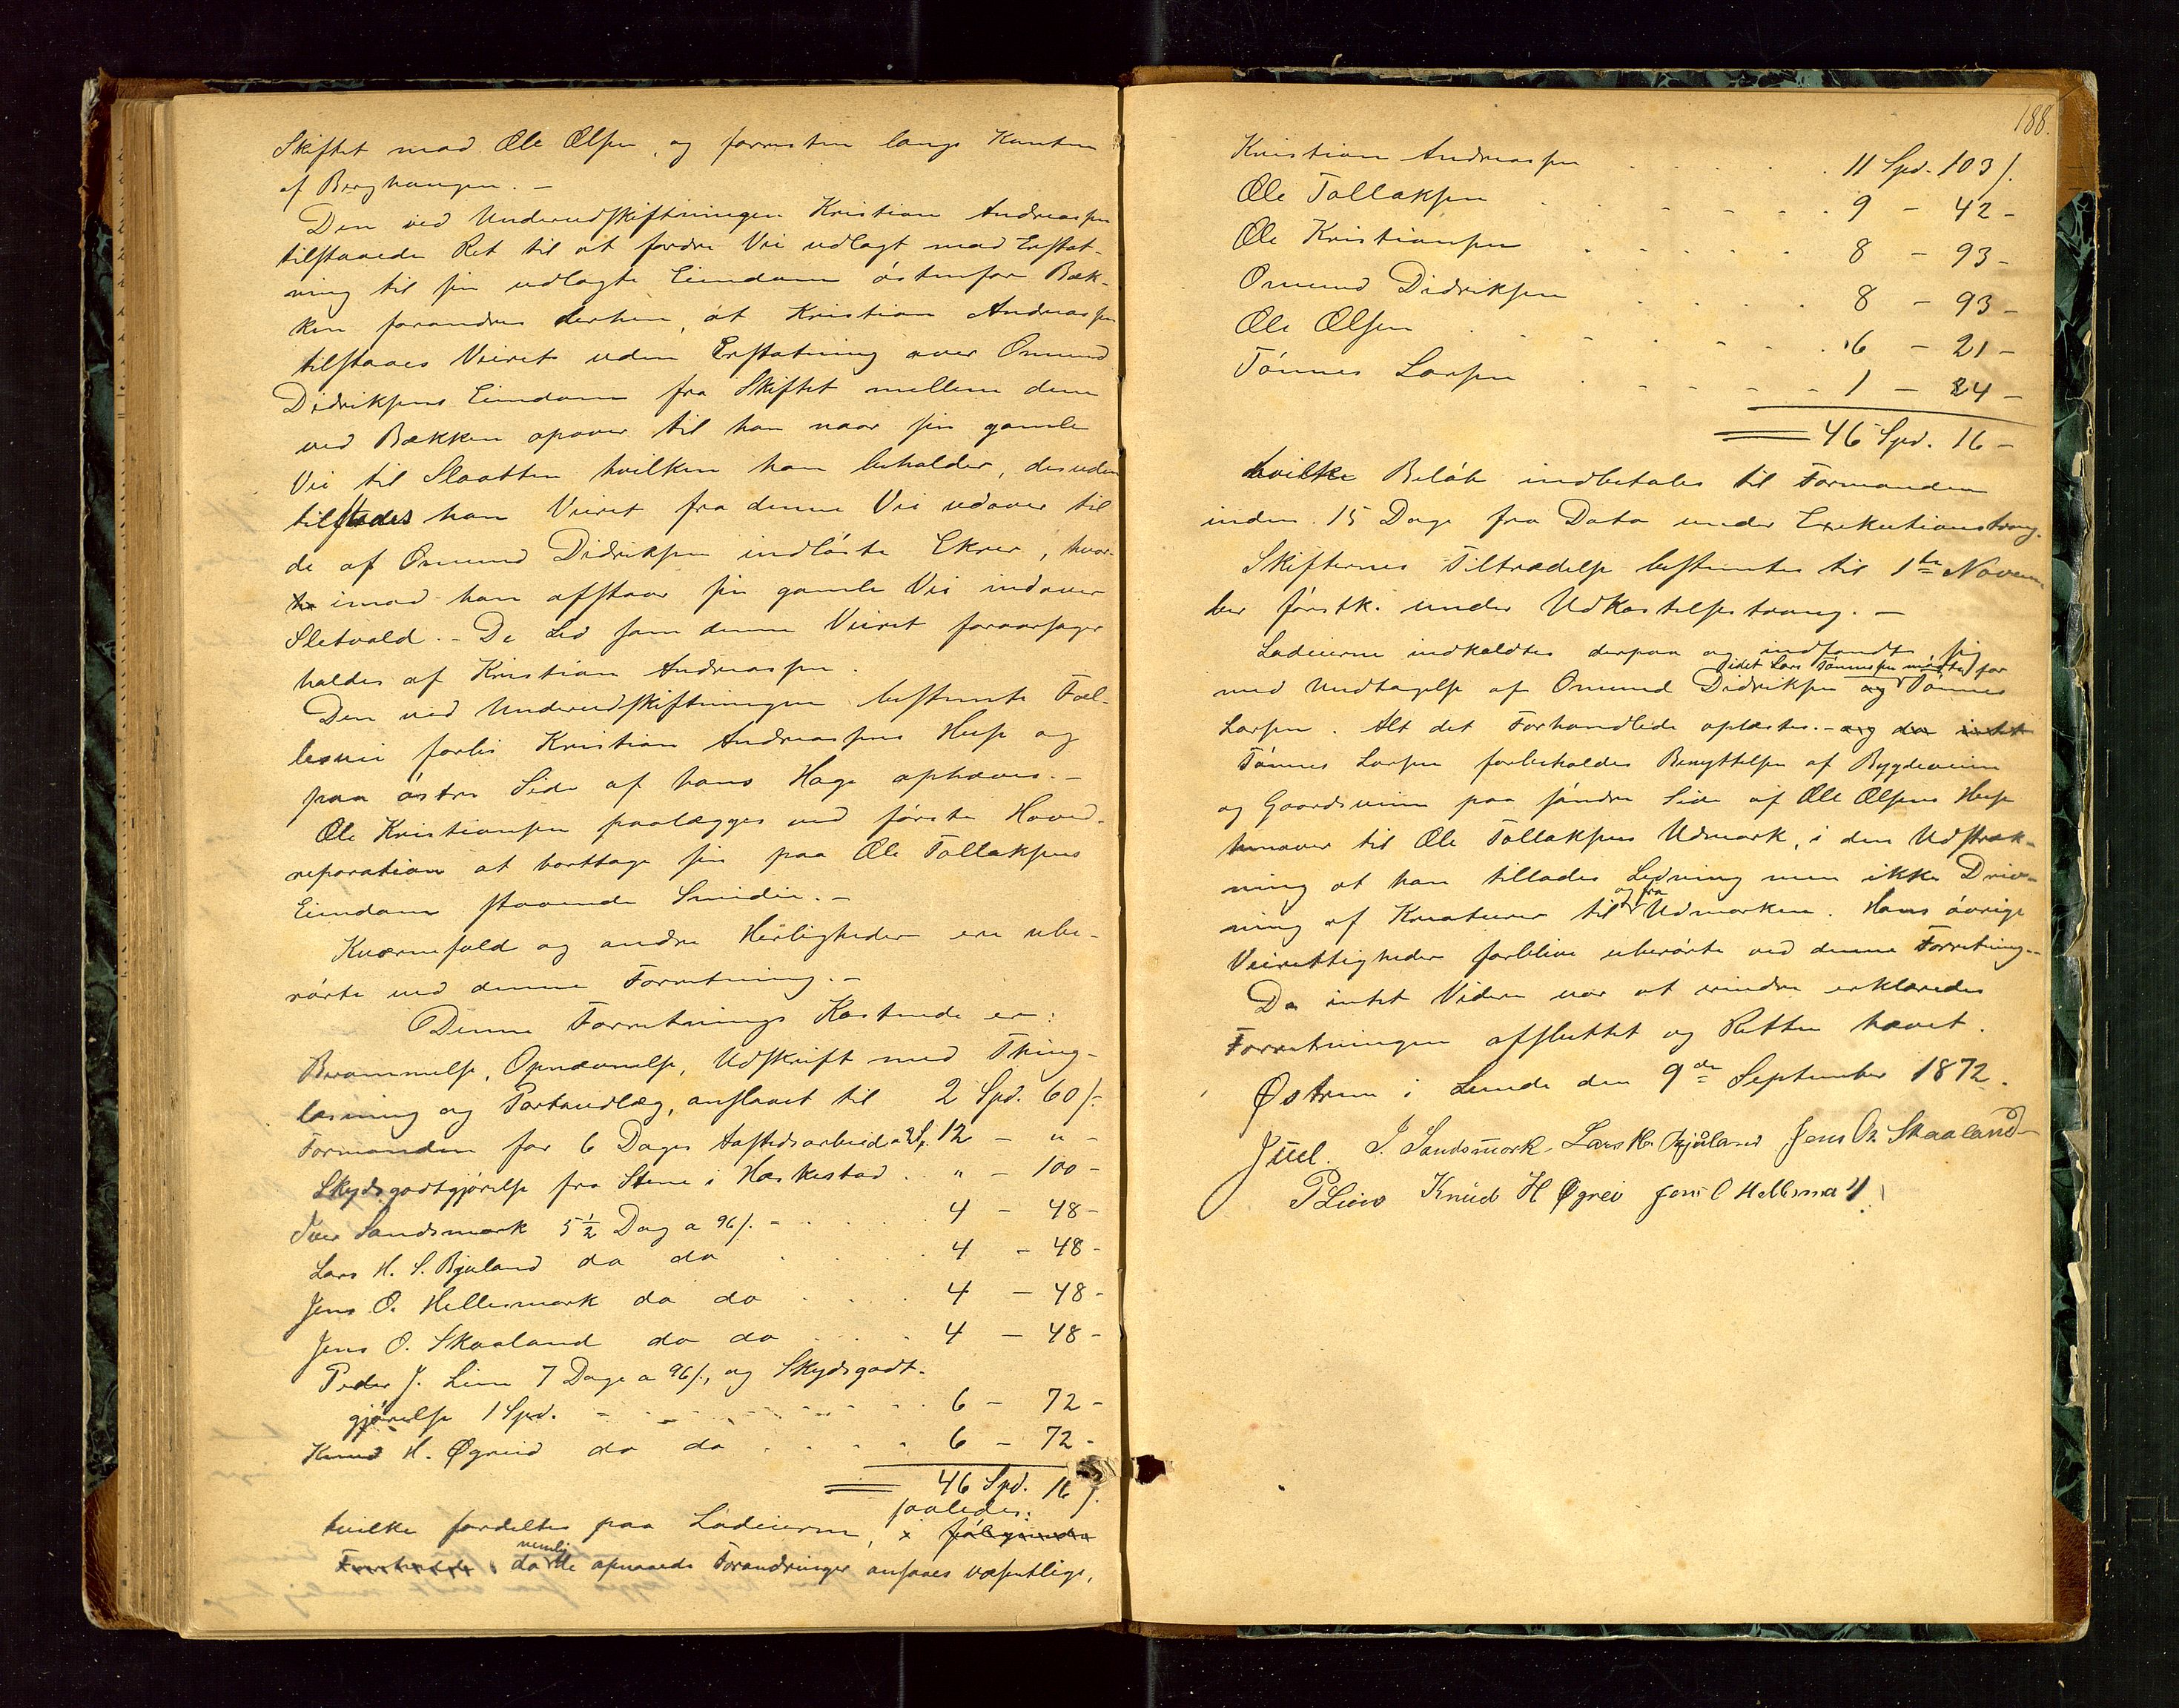 Skiftet med Ole Olsen, og forresten langs Kanten
af Berghaugen. –
Den ved Underudskiftningen Kristian Andreassen
tilstaaede Ret til at fordre Vei udlagt mod Erstat-
ning til sin udlagte Eiendom østenfor Bæk-
ken forandres derhen, at Kristian Andreassen
tilstaaes Veiret uden Erstatning over Omund
Didriksens Eiendom fra Skiftet mellem dem
ved Bækken opover til han naar sin gamle
Vei til Slaatten hvilken han beholder, desuden
tilstedes han Veiret fra denne Vei udover til
de af Omund Didriksen indløste Ekrer, hvor-
imod han afstaar sin gamle Vei indover
Sletvold. – De Led som denne Veiret foraarsager
holdes af Kristian Andreassen.
Den ved Underudskiftningen bestemte Fæl-
lesvei forbi Kristian Andreassens Huse og
paa østre Side af hans Hage ophæves. –
Ole Kristiansen paalægges ved første Hoved-
reparation at borttage sin paa Ole Tollaksens
Eiendom staaende Smidie. –
Kværnefald og andre Herligheder ere ube-
rørte ved denne Forretning. –
Denne Forretnings Kostende er:
Berammelse, Opnævnelse, Udskrift med Thing-
læsning og Portoudlæg, anslaaet til 2 Spd. 60 s.
Formanden for 6 Dages Aastedsarbeide a 2 Sp. 12 – " –
Skydsgodtgjørelse fra Stene i Heskestad . " – 100 –
Iver Sandsmark 5 1/2 Dag a 96 s. – . . . 4 – 48 –
Lars H. S. Bjuland do do . . . 4 – 48 –
Jens O. Hellesmark do do . . . 4 – 48 –
Jens O. Skaaland do do . . . 4 – 48 –
Peder J. Lien 7 Dage a 96 s., og Skydsgodt-
gjørelse 1 Spd. – . . . 6 – 72 –
Knud H. Øgreid do do . . . . 6 – 72 –
46 Spd. 16 s.
saaledes:
hvilke fordeltes paa Lodeierne, x følgende
Forhold nemlig da de opnaaede Forandringer ansaaes væsentlige,
188.
Kristian Andreassen . . . . 11 Spd. 103 s.
Ole Tollaksen . . . . 9 – 42 –
Ole Kristiansen . . . . 8 – 93 –
Omund Didriksen . . . . 8 – 93 –
Ole Olsen . . . . 6 – 21 –
Tønnes Larsen . . . . 1 – 24 –
46 Spd. 16 –
hvilke Beløb indbetales til Formanden
inden 15 Dage fra Dato under Exekutionstvang.
Skifternes Tiltrædelse bestemtes til 1ste Novem-
ber førstk. under Udkastelsestvang. –
Lodeierne indkaldtes derpaa og indfandt sig
idet Lars Tønnesen mødte for
med Undtagelse af Omund Didriksen og Tønnes
Larsen. Alt det Forhandlede oplæstes. – og da intet
Tønnes Larsen forbeholdes Benyttelsen af Bygdeveien
og Gaardsveien paa søndre Side af Ole Olsens Huse
henover til Ole Tollaksens Udmark, i den Udstræk-
ning at han tillades Ledning men ikke Driv-
ning af Kreaturer til og fra Udmarken. Hans øvrige
Veirettigheder forblive uberørte ved denne Forretning. –
Da intet Videre var at erindre erklæredes
Forretningen afsluttet og Retten hævet.
Østrem i Lunde den 9de September 1872.
Juel. I. Sandsmark. Lars Hs Bjuland Jens Os Skaaland
P Lien Knud H Øgrei Jens O Hellesmark